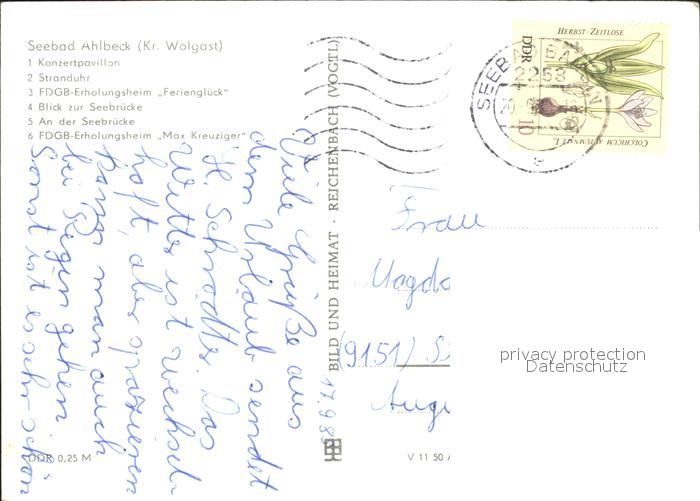 Seebad Ahlbeck (Kr. Wolgast)
1 Konzertpavillon
2 Stranduhr
3 FDGB-Erholungsheim „Ferienglück"
4 Blick zur Seebrücke
5 An der Seebrücke
6 FDGB-Erholungsheim „Max Kreuziger"
Viele Grüße aus
dem Urlaub sendet
H. Schrödter. Das
Wetter ist wechsel
haft, aber spazieren
kann man auch
bei Regen gehen.
Sonst ist es sehr schön
17.9.83
BILD UND HEIMAT · REICHENBACH (VOGTL)
HERBST-ZEITLOSE
DDR
10
COLCHICUM AUTUMNALE L.
SEEBAD
2253
20.
Frau
Magda
(9151)
DDR 0,25 M
V 11 50
privacy protection
Datenschutz